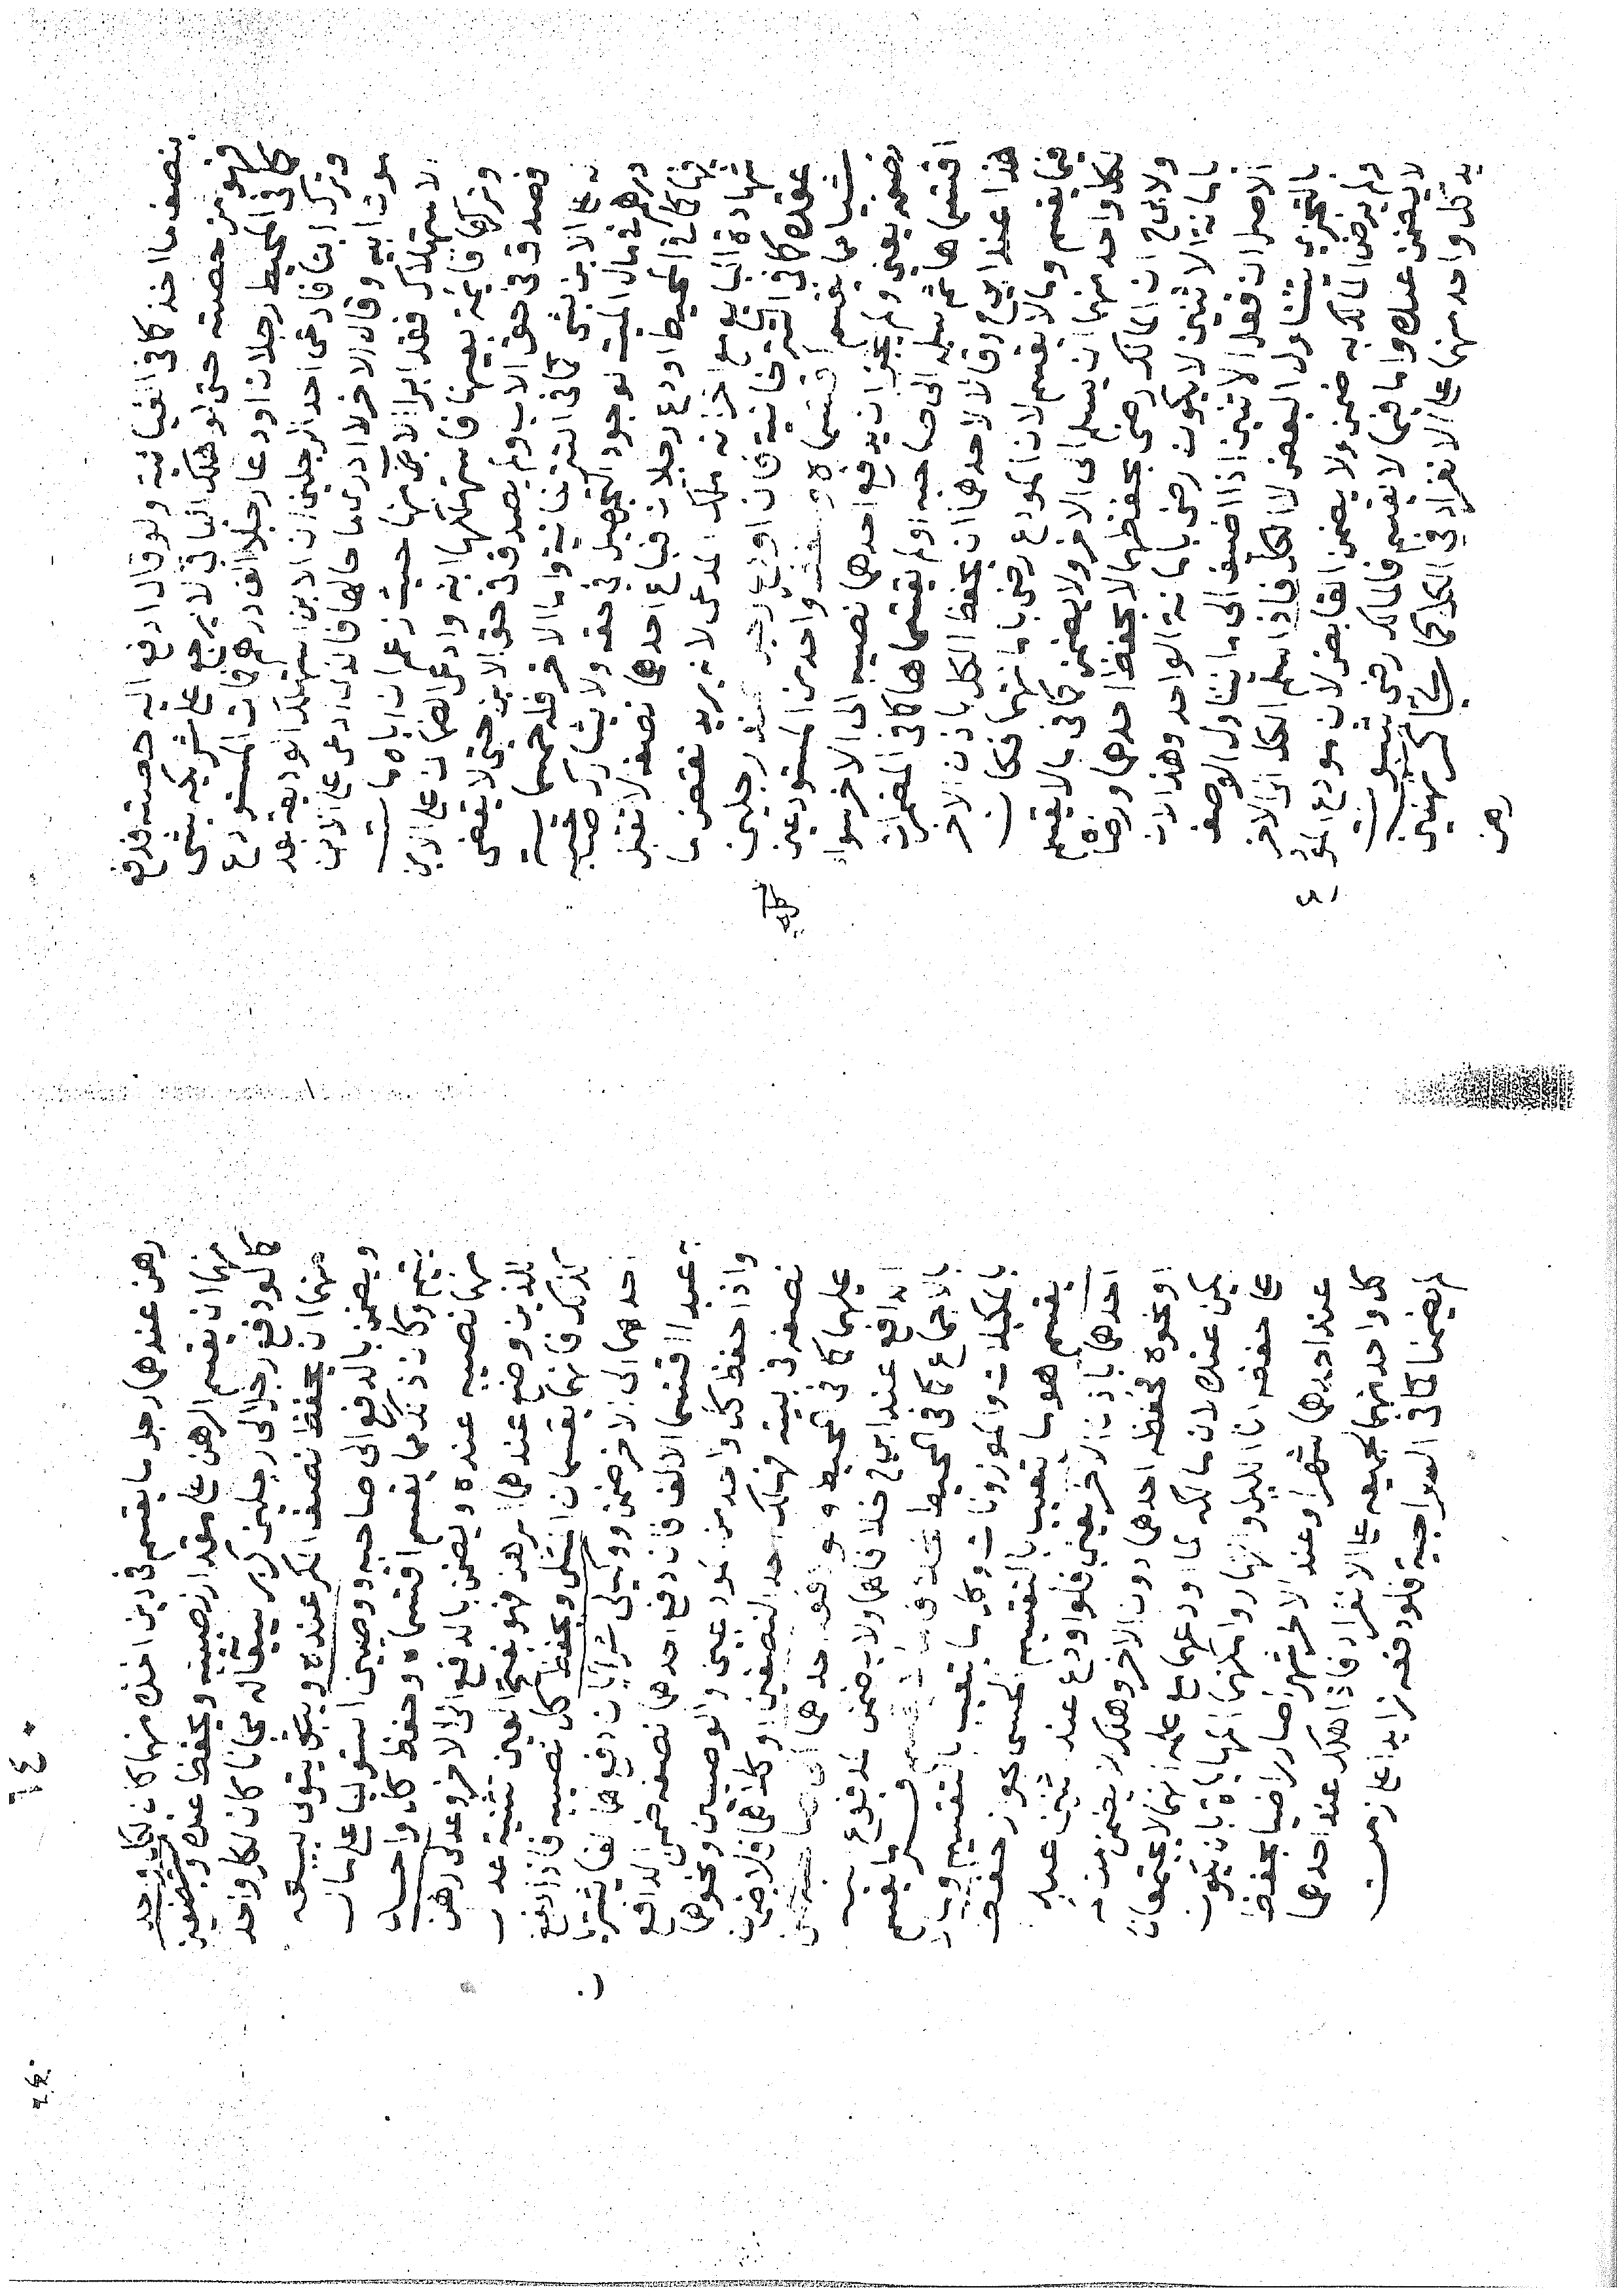 بنصف ما اخذ كما في الغياثية ولو قال ادفع اليه حصته فدفع
فهو من حصته حتى لو هلك الباقي لا يرجع على شريكه بشئ
كما في المحيط رجلان اودعا رجلا الف درهم فمات المستودع
وترك ابنا فادعى احد الرجلين ان الابن استهلك الوديعة بعد
موت ابيه وقال الاخر لا ادري ما حالها فالذي ادعى على الابن
الاستهلاك فقد ابرا الاب منها حيث زعم ان اباه مات
وتركها قايمة بعينها فاستهلكها ابنه وادعى الضمان على الابن
فصدق في حق الاب ولم يصدق في حق الابن حتى لا يقضى
له على الابن بشئ كما في التترخانية واما الاخر فله خمسماية
درهم في مال الميت لوجود التجهيل في حقه ولا يشاركه صاحبه
فيها كما في المحيط اودع رجلان فباع احدهما نصفه لا تقبل
شهادة البايع مع اخر انه ملك المدعى لانه يريد نقض ما
عقده كما في التترخانية فان اودع رجل عند رجلين
شيا مما يقسم اقتسماه و واحد من المستودعين
نصفه يعني ولم يجز ان يدفع احدهما نصيبه الى الاخر سواء
اقتسماها ثم سلم الى صاحبه او لم يقتسماها كما في المضمرات
هذا عند ابي ح وقالا لاحدهما ان يحفظ الكل باذن الاخر
فيما يقسم وما لا يقسم لان المودع رضي بامانتهما فكان
لكل واحد منهما ان يسلم الى الاخر ولا يضمن كما في ما لا يقسم
ولابي ح ان المالك رضي بحفظهما لا بحفظ احدهما ورضاه
بامانة الاثنين لا يكون رضى بامانة الواحد وهذا لان
الاصل ان فعل الاثنين اذا اضيف الى ما يتناول الوصف
بالتجزي يتناول البعض لا الكل فاذا سلم الكل الى الاخر
ولم يرض المالك به ضمن ولا يضمن القابض لان مودع المودع
لا يضمن عنده واما فيما لا يقسم فالمالك رضي بثبوت
يد كل واحد منهما على الانفراد في الكل كما في
رهن
رهن عندهما رجل ما يقسم في دين اخذه منهما كان لكل واحد
منهما ان يقسم الرهن على مقدار نصيبه ويحفظ عنده
كما لو دفع رجل الى رجلين كر ليبيعا له مجانا كان لكل واحد
منهما ان يحفظ نصف الكر عنده ويتولى بيعه
ويضمن بالدفع الى صاحبه ووصيين استوليا على مال
يتيم وكان ذلك مما يقسم اقتسماه وحفظ كل واحد
منهما نصيبه عنده ويضمن بالدفع الى الاخر وعدلي رهن
الذين وضع عندهما الرهن فهو بفتح العين تثنية عدل
كذلك فانهما يقسمان المثلى ويحفظ كل نصيبه فاذا دفع
احدهما الى الاخر ضمن ووكيلي شراء بان دفع لهما الفا ليشتريا
عبدا اقتسما الالف فان دفع احدهما نصفه ضمن الدافع
واذا حفظ كل واحد من المودعين والوصيين ونحوهما
نصفه في بيته فهلك احد النصفين او كلاهما فلا ضمان
عليهما كما في المحيط ولو دفعه احدهما الى صاحبه
الدافع عند ابي ح خلافا لهما ولا يضمن المدفوع اليه
بالاجماع كما في المحيط ما يقسم
بالمكيلات والموزونات وكل ما يتعيب بالتقسيم وما لا
يقسم هو ما تعيب بالتقسيم الحسي يجوز حفظ
احدهما باذن الاخر يعني فلو اودع عند اثنين عبد
او نحوه فحفظه احدهما دون الاخر وهلك لا يضمن لانه
يمكن عنده لان مالكه لما اودعهما مع علمه انهما لا يجتمعان
على حفظه اناء الليل والنهار وامكنهما المهاياة بان يكون
عند احدهما شهرا وعند الاخر شهرا صار راضيا بحفظ
كل واحد منهما لجميعه على الانفراد فاذا هلك عند احدهما
لم يضمنا كما في السراجية فلو دفعه زايدا على زمن
١٤٠